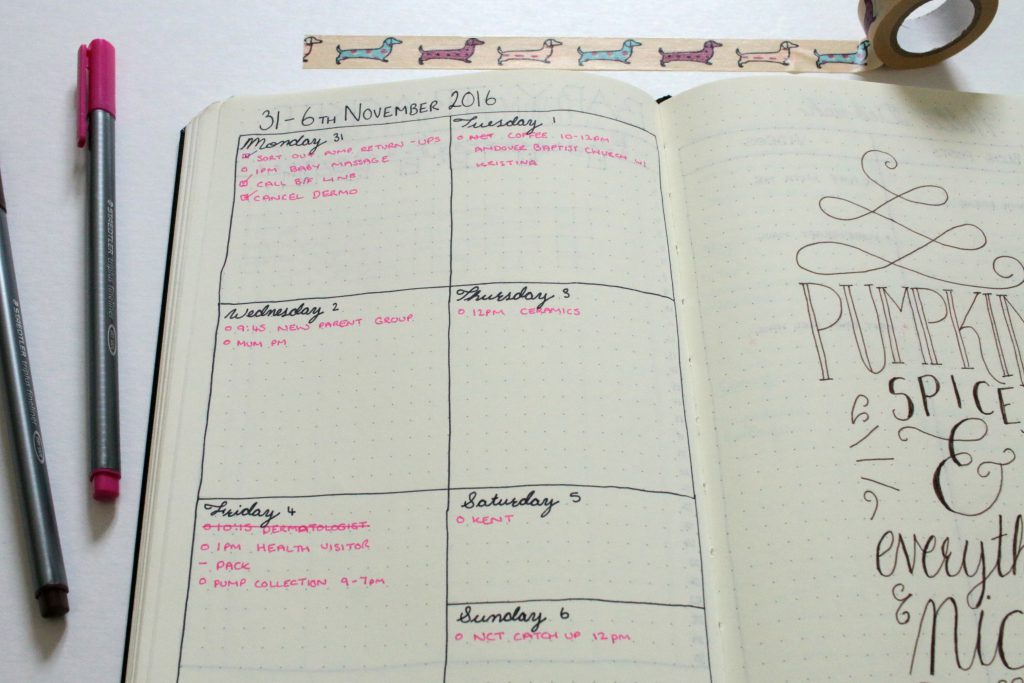 31-6TH NOVEMBER 2016
Monday 31
SORT OUT PUMP RETURN -UPS
1PM BABY MASSAGE
CALL B/F LINE
CANCEL DERMO
Tuesday 1
NCT COFFEE 10-12PM
ANDOVER BAPTIST CHURCH W/
KRISTINA
Wednesday 2
9:45 NEW PARENT GROUP
MUM PM
Thursday 3
12PM CERAMICS
Friday 4
10:15 DERMATOLOGIST
1PM HEALTH VISITOR
- PACK
PUMP COLLECTION 9-7PM
Saturday 5
KENT
Sunday 6
NCT CATCH UP 12PM
PUMPKIN
SPICE
&
everyth
& NIC
STAEDTLER triplus fineliner
STAEDTLER triplus fineliner